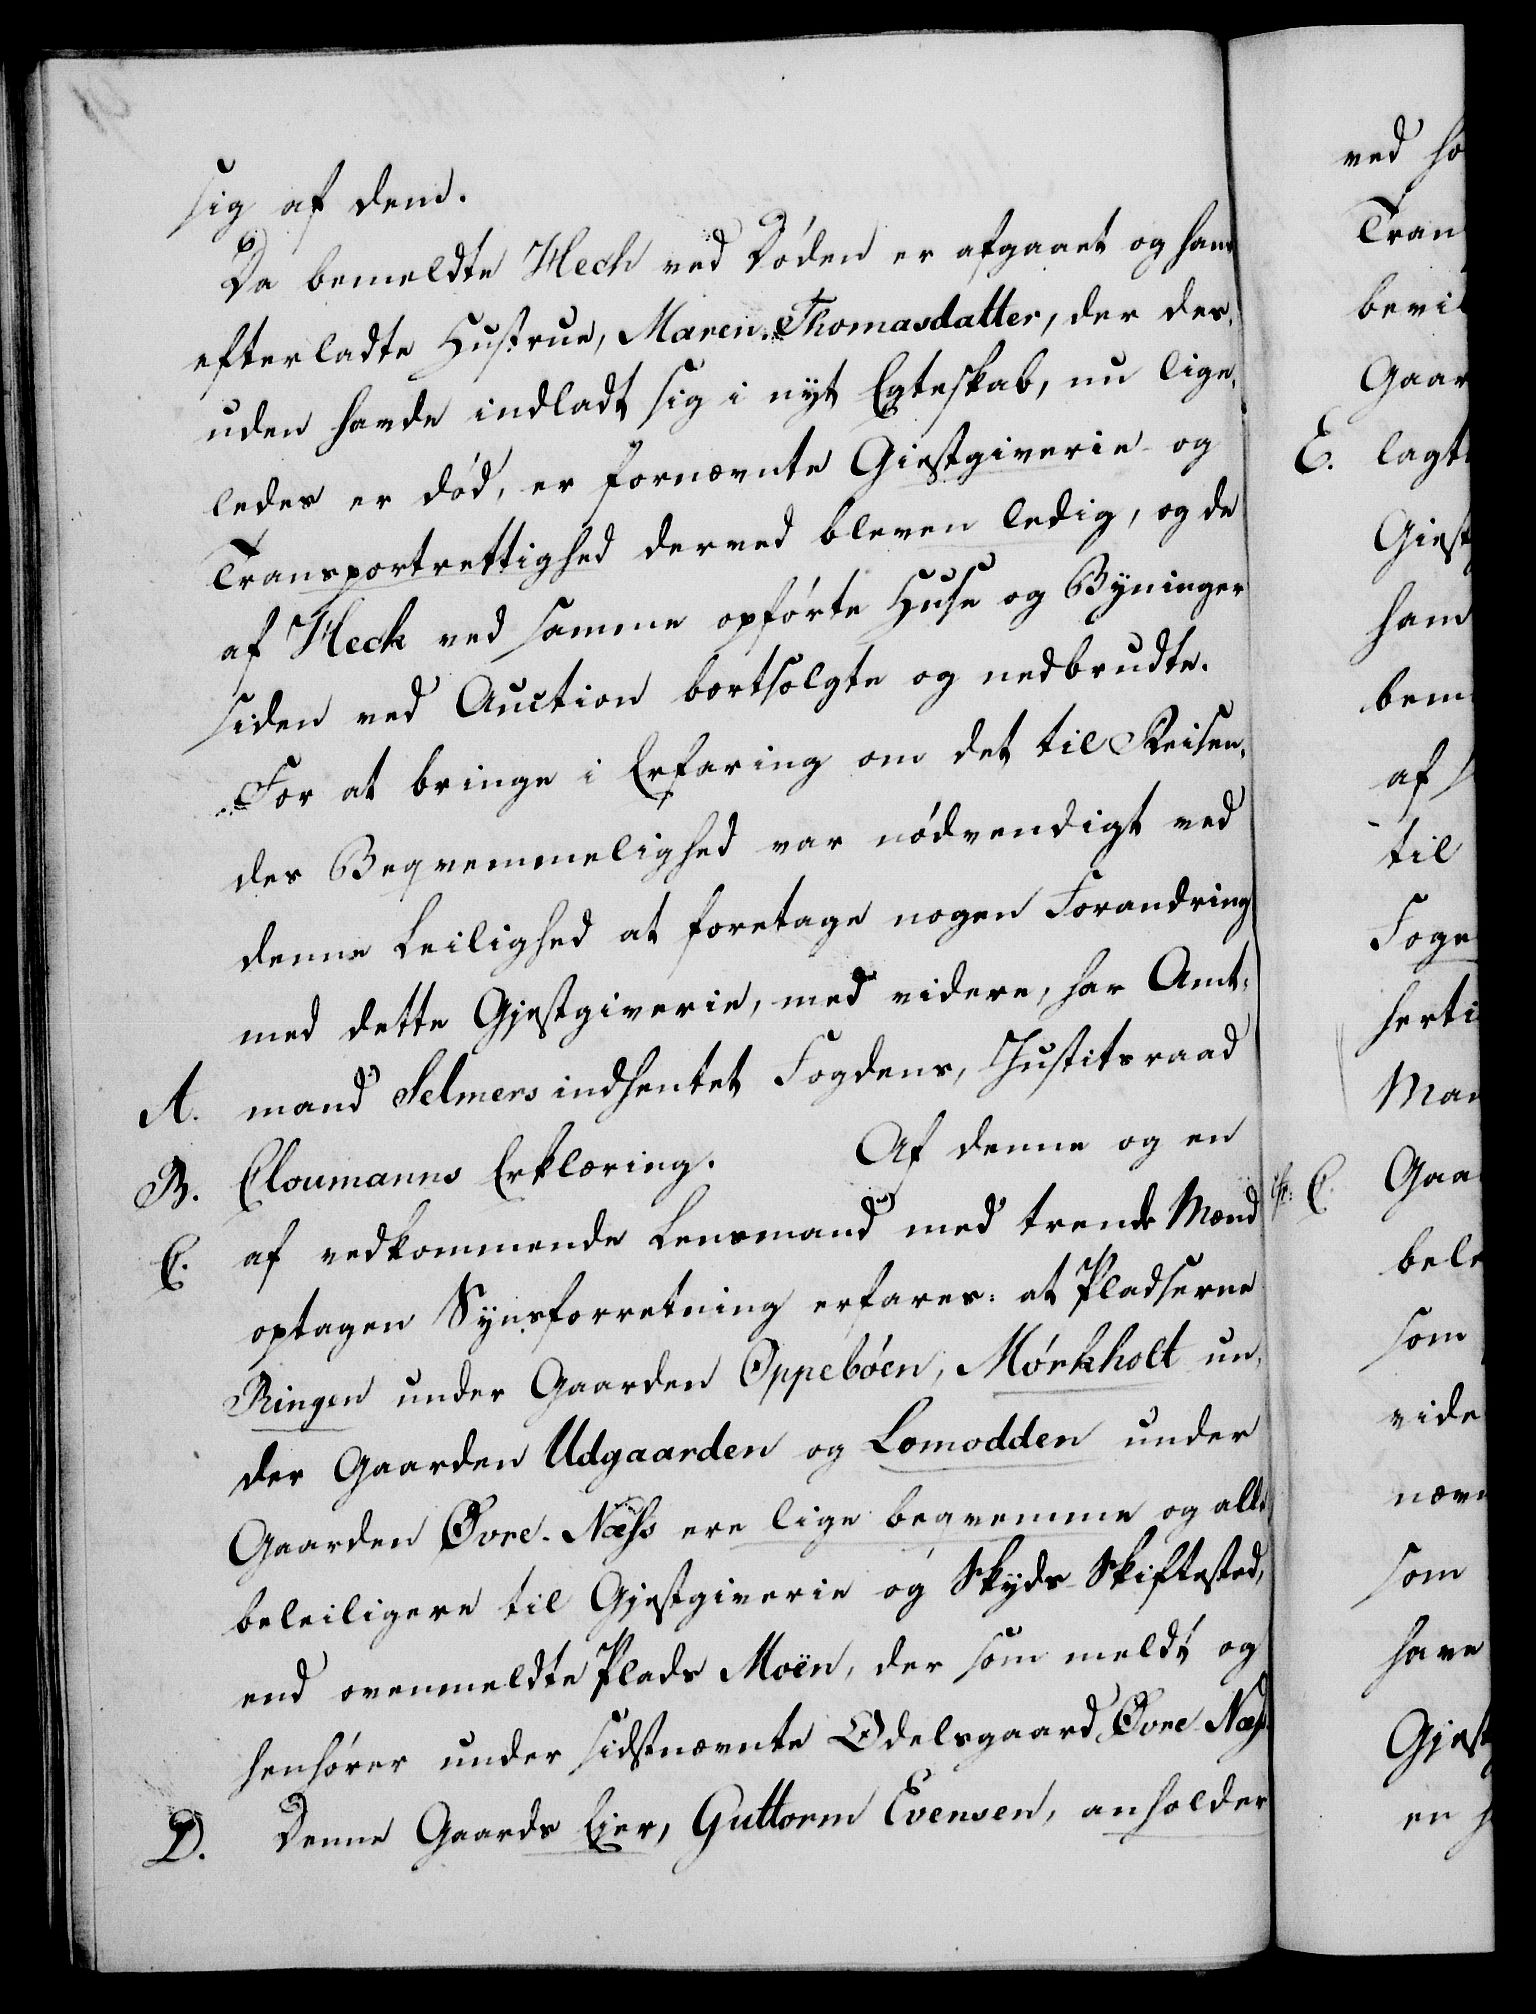 sig af dem.
Da bemeldte Heck ved Döden er afgaaet og hans
efterladte Hustrue, Maren Thomasdatter, der des-
uden havde indladt sig i nyt Egteskab, nu lige-
ledes er död, er fornævnte Giestgiverie og
Transportrettighed derved bleven ledig, og de
af Heck ved samme opförte Huse og Byninger
siden ved Auction bortsolgte og nedbrudte.
For at bringe i Erfaring om det til Reisen-
des Beqvemmelighed var nödvendigt ved
denne Leilighed at foretage nogen Forandring
med dette Gjestgiverie, med videre, har Amt-
A. mand Selmers indhentet Fogdens, Justitsraad
B. Cloumanns Erklæring. Af denne og en
C. af vedkommende Lensmand med trende Mænd
optagen Synsforretning erfares: at Pladserne
Ringen under Gaarden Oppeböen, Mörkholt un-
der Gaarden Udgaarden og Lomodden under
Gaarden Øvre-Næss ere lige beqvemme og alle
beleiligere til Gjestgiverie og Skyds-Skiftested,
end ovenmeldte Plads Moën, der som meldt og
henhörer under sidstnævnte Odelsgaard Øvre-Næss.
D. Denne Gaards Eier, Guttorm Evensen, anholder
ved
E.
Giest
ham
af
til
C.
som
som
have
Gjest
en